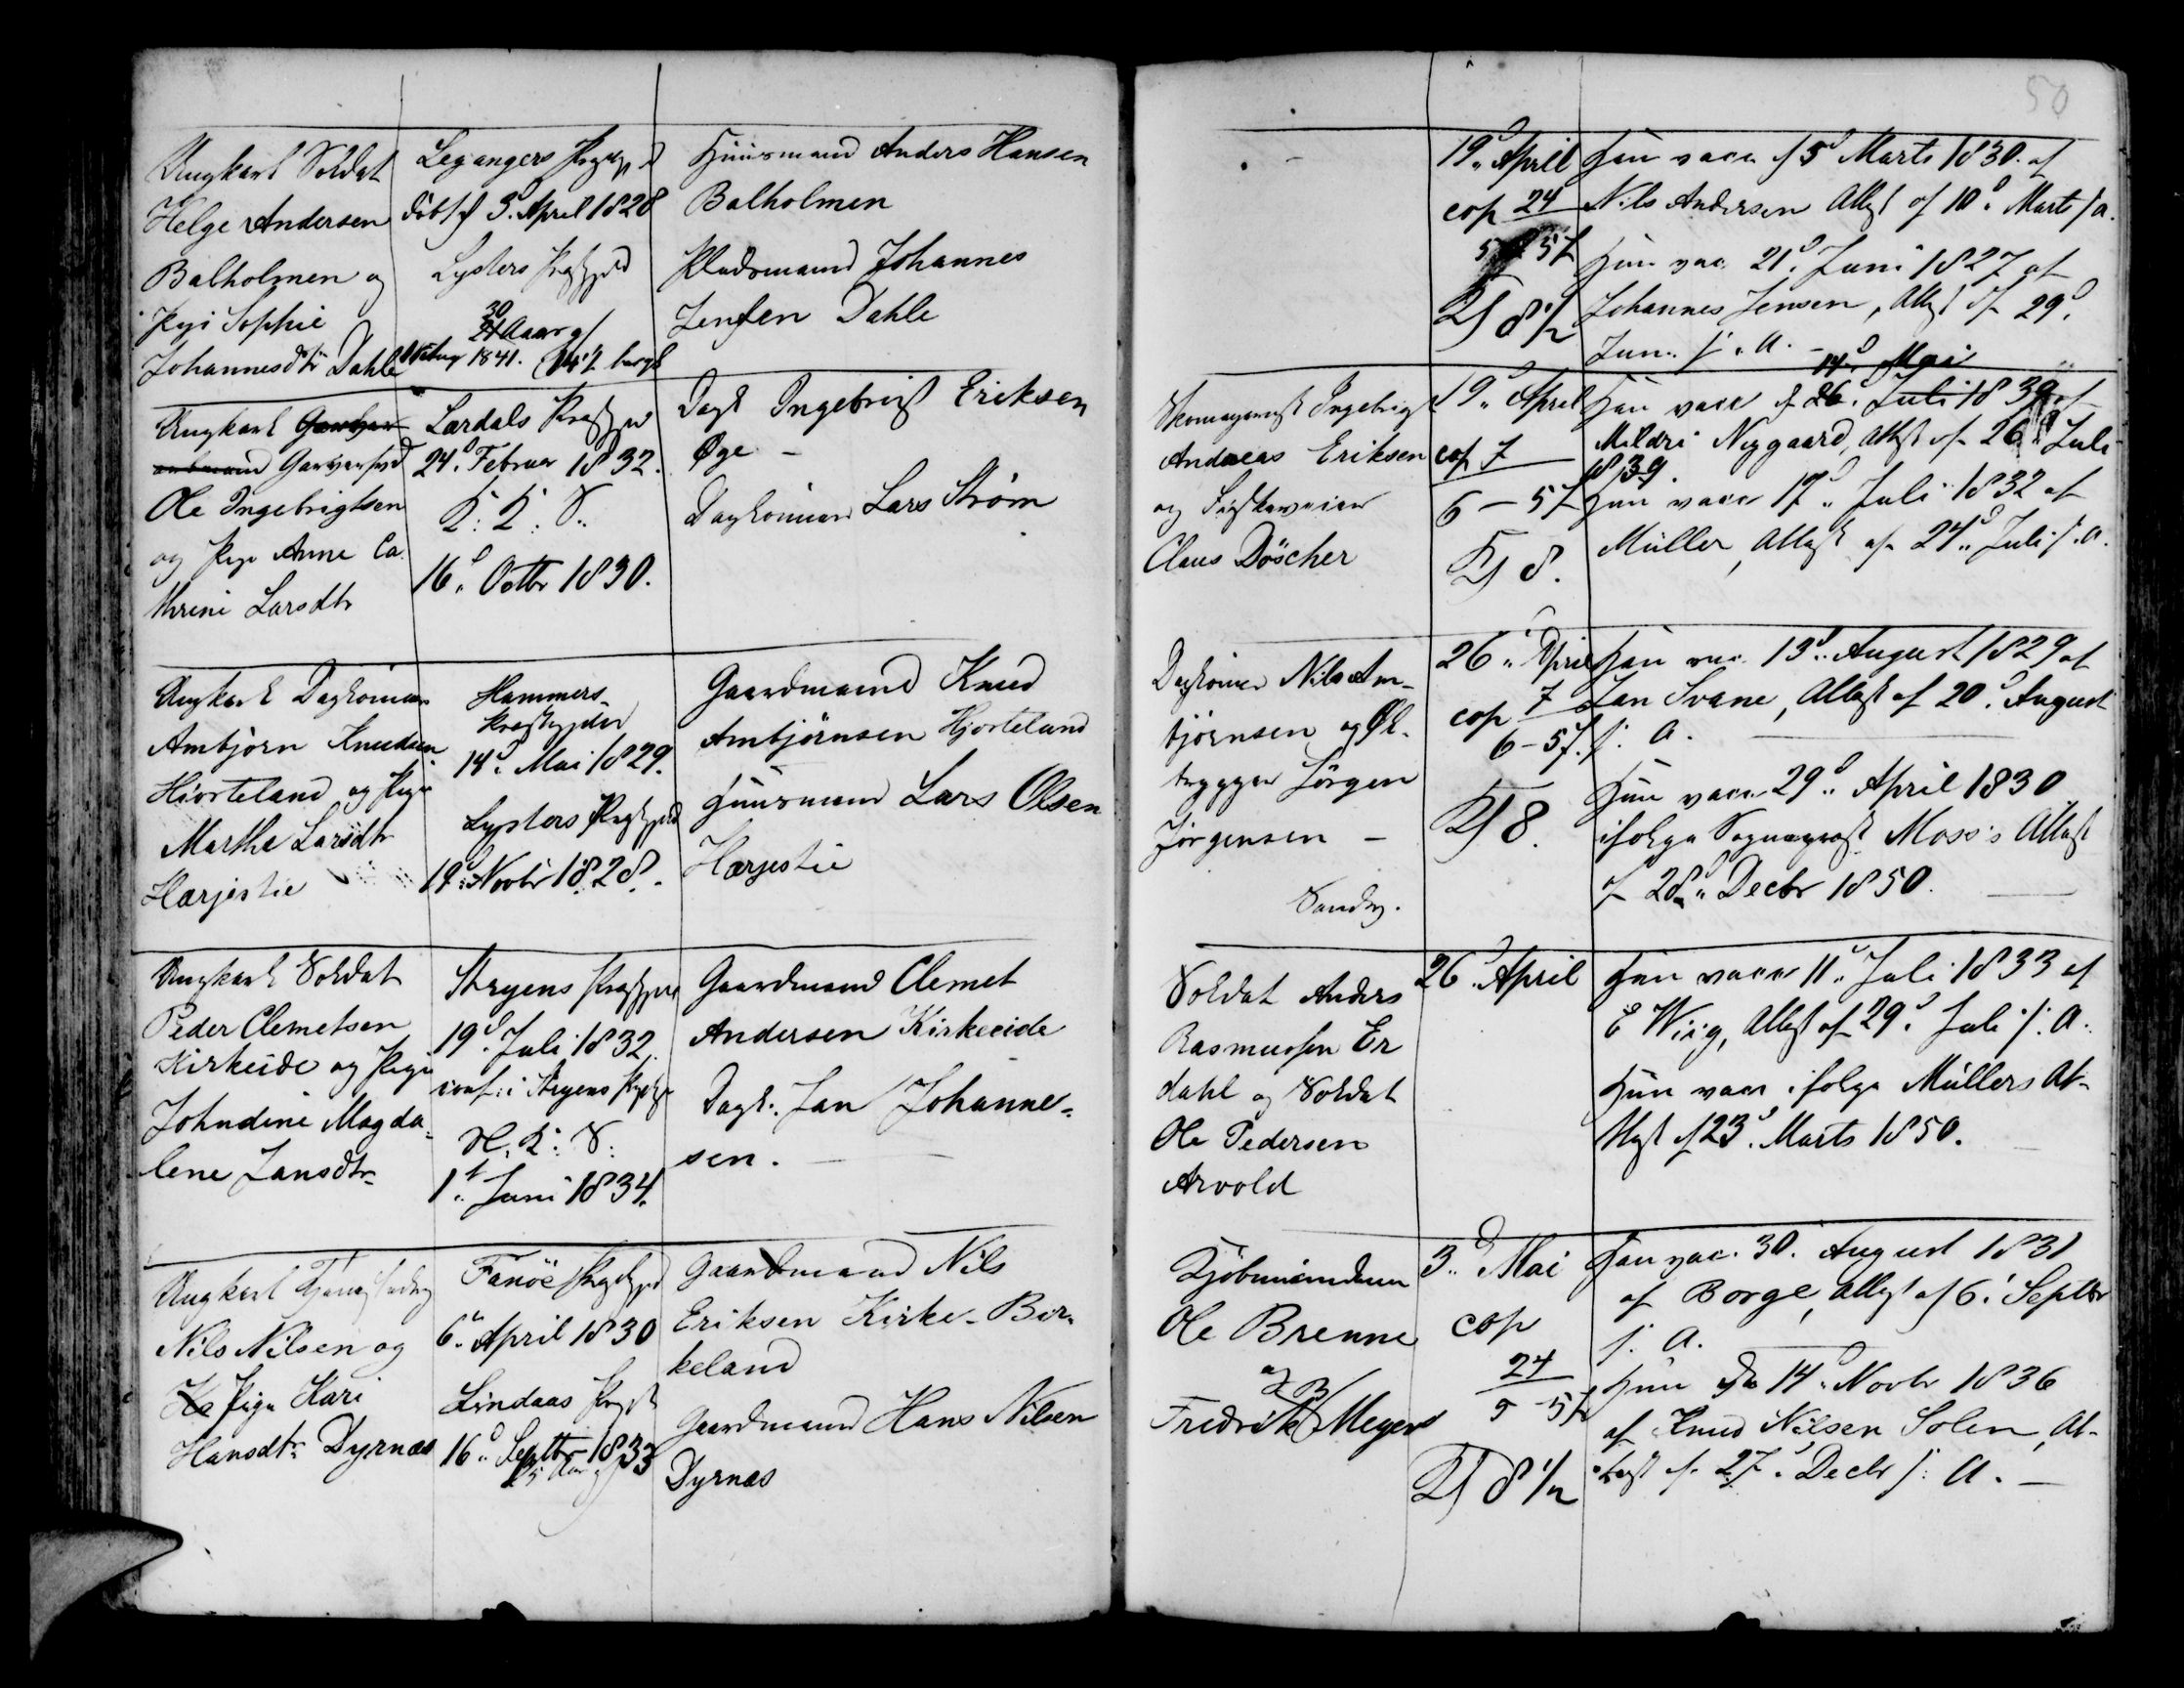 50
Ungkarl Soldat
Helge Andersen
Balholmen og
Pige Sophie
Johannesdtr Dahle
Legangers Prgjd
døbt d 3d April 1828
Lysters Prgjd
30
Aar
1841.
Huusmand Anders Hansen
Balholmen
Pladsmand Johannes
Jensen Dahle
19d April
cop 24
5 - 5f
8 1/2
Han vacc d 5d Marts 1830 af
Nils Andersen Attest af 10d Marts s. a.
Hun vac. 21d Juni 1827 af
Johannes Jensen, Attest af 29d
Juni s. a. -
Ungkarl
Garversvd
Ole Ingebrigtsen
og Pige Anne Ca
thrine Larsdtr
Lærdals Prgjd
24d Februar 1832.
K. K. S.
16d Octbr 1830.
Dagk Ingebrigt Eriksen
Øge -
Dagkarl Lars Strøm
Ingebrigt
Andreas Eriksen
og
Claus Döscher
19d April
cop 7
6 - 5f
8.
14d Mai
Han vacc d 26d Juli 1839 af
Mildri Nygaard, Attest af 26d Juli
1839.
Han vacc 17d Juli 1832 af
Müller, Attest af 24d Juli s. a.
Ungkarl
Ambjørn Knudsen
Hiorteland og Pige
Martha Larsdtr
Hærjestie
Hammers
Prgjd
14d Mai 1829.
Lysters Prgjd
19d Novbr 1828.
Gaardmand Knud
Ambjørnsen Hjorteland
Huusmand Lars Olsen
Hærjestie
Nils Am-
bjørnsen og Øl-
brygger Jörgen
Jørgensen -
Sandv.
26d April
cop 7
6 - 5f.
8.
Han vac. 13d August 1829 af
Jan Svane, Attest af 20d August
s. a.
Hun vacc 29d April 1830
ifølge Sognepræst Moss's Attest
af 28d Decbr 1850.
Ungkarl Soldat
Peder Clemetsen
Kirkeide og Pige
Johndine Magda-
lene Jansdtr
Stryens Prgjd
19d Juli 1832
conf. i Stryens Prgjd
N. K. S.
1st Juni 1834.
Gaardmand Clemet
Andersen Kirkeeide
Dagk. Jan Johanne-
sen. -
Soldat Anders
Rasmussen Er
dahl og Soldat
Ole Pedersen
Arvold
26d April
Han vacc 11d Juli 1833 af
E Wiig, Attest af 29d Juli s. a.
Hun vacc ifølge Müllers At-
test af 23d Marts 1850.
Ungkarl
Nils Nilsen og
Pige Kari
Hansdtr Dyrnæs
Fanöe Prgjd
6d April 1830
Lindaas Prgjd
16d Septbr 1833
Gaardmand Nils
Eriksen Kirke-Bir-
keland
Gaardmand Hans Nilsen
Dyrnæs
Kjøbmændene
Ole Brenne
og
Fredrik Meyer
3d Mai
cop
24
5 - 5f
8 1/2
Han vac. 30. August 1831
af Borge, Attest af 6. Septbr
s. a.
Hun 14d Novbr 1836
af Knud Nilsen Solem, At-
test af 27d Decbr s. a. -